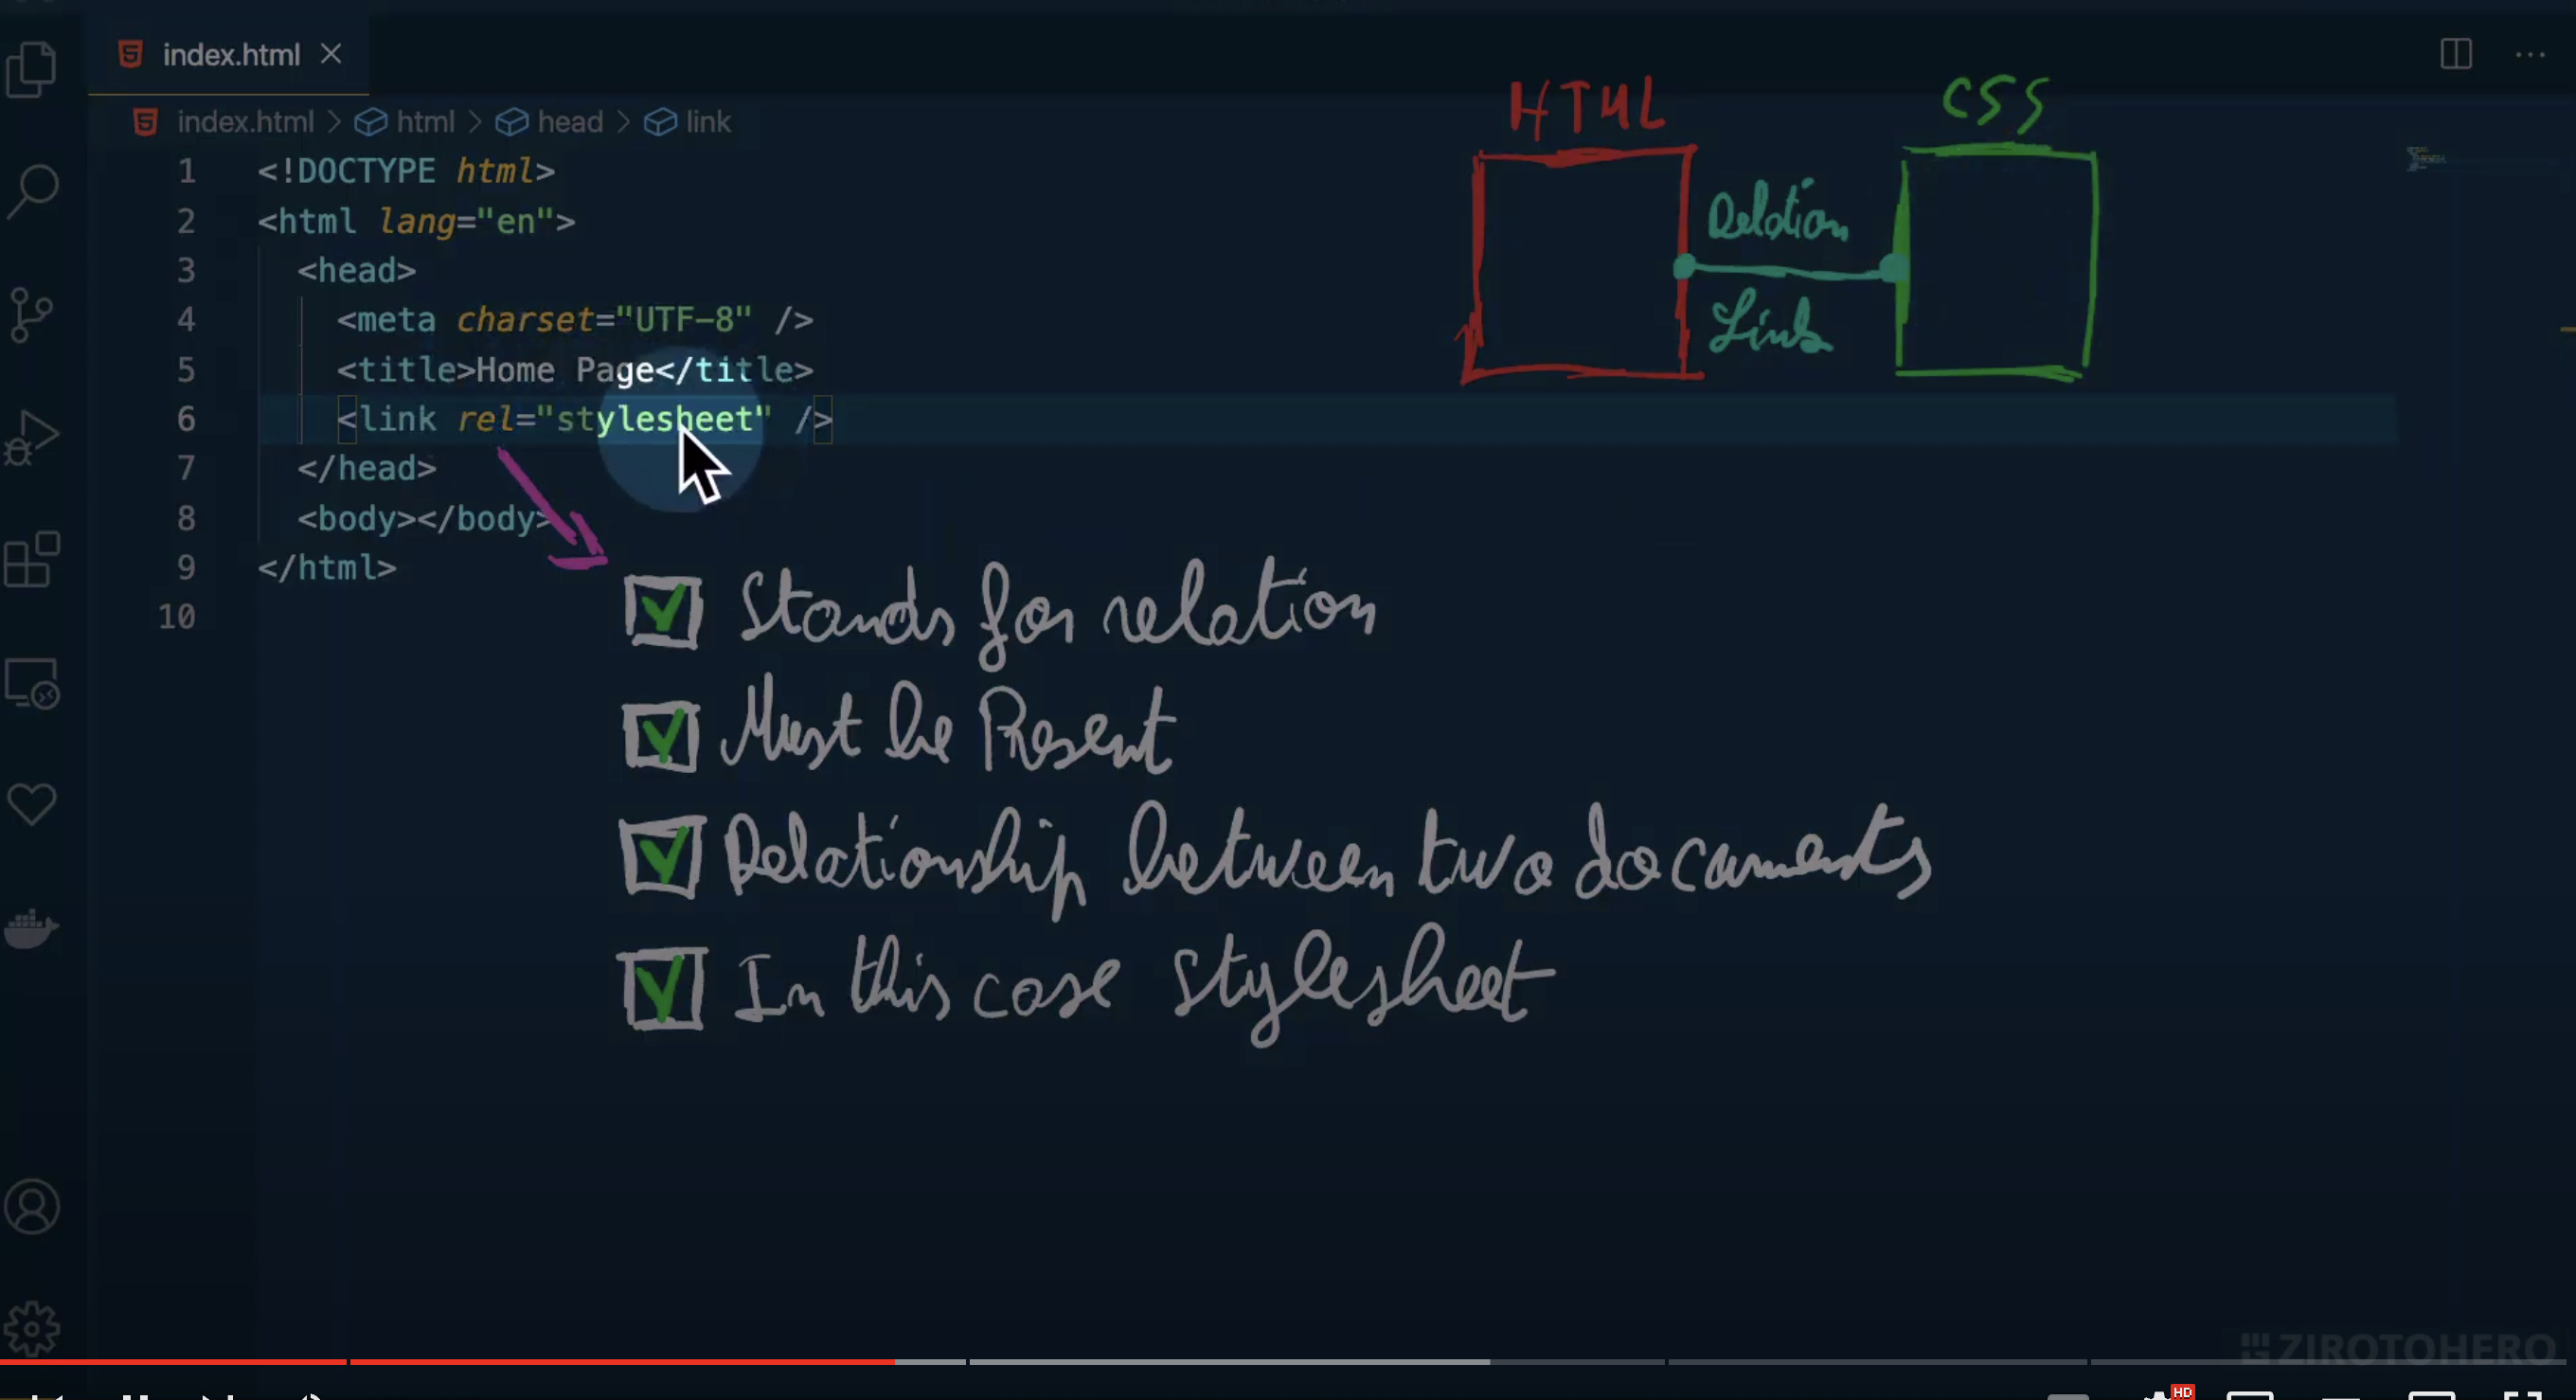 index.html
HTML
CSS
index.html > html > head > link
1 <!DOCTYPE html>
2 <html lang="en">
3 <head>
4 <meta charset="UTF-8" />
5 <title>Home Page</title>
6 <link rel="stylesheet" />
7 </head>
8 <body></body>
9 </html>
10
Relation
Link
Stands for relation
Must be Present
Relationship between two documents
In this case Stylesheet
ZIROTOHERO
HD